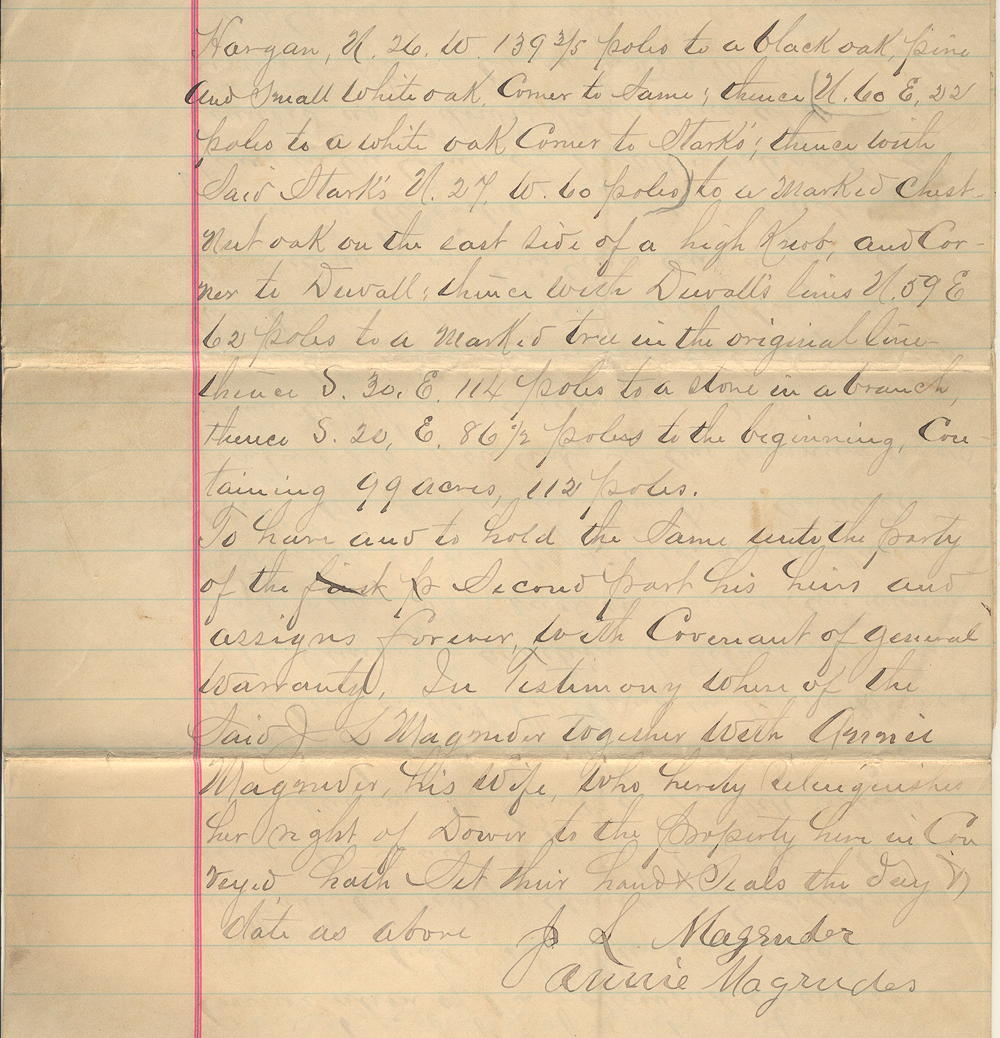 Hargan, N. 26. W. 139 3/5 poles to a black oak, pine
and Small White oak, Corner to Same; thence (N. 60 E, 22
poles to a white oak Corner to Stark's; thence with
Said Stark's N. 27, W. 60 poles) to a Marked Chest-
nut oak on the east side of a high Knob, and Cor-
ner to Duvall; thence with Duvall's lines N. 59 E
62 poles to a Marked tree in the original line
thence S. 30, E. 114 poles to a stone in a branch,
thence S. 20, E. 86 1/2 poles to the beginning, Con-
taining 99 acres, 112 poles.
To have and to hold the Same unto the party
of the Second part his heirs and
assigns forever, with Covenant of general
Warranty, In Testimony where of the
Said J L Magruder together with Annie
Magruder, his wife, who hereby relinquishes
her right of Dower to the Property here in Con
veyed hath Set their hand & Seals the day &
date as above J L Magruder
Annie Magruder